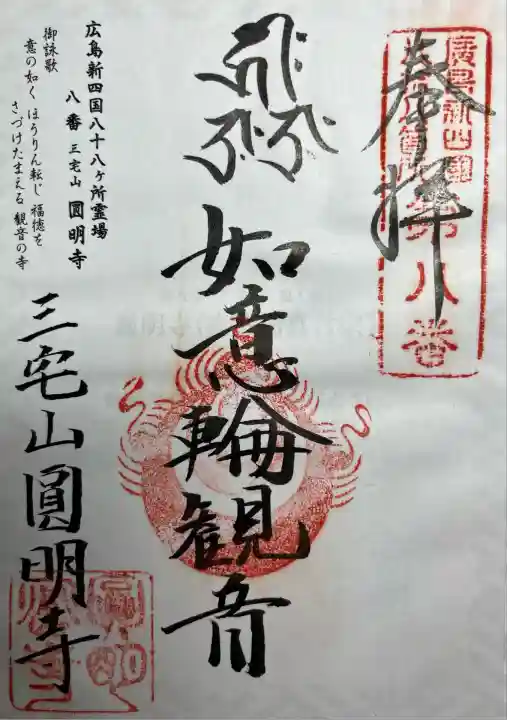 奉拝
廣島新四國
第八番
如意輪観音
広島新四国八十八ヶ所霊場
八番 三宅山 圓明寺
御詠歌
意の如く ほうりん転じ 福徳を
さづけたまえる 観音の寺
三宅山圓明寺